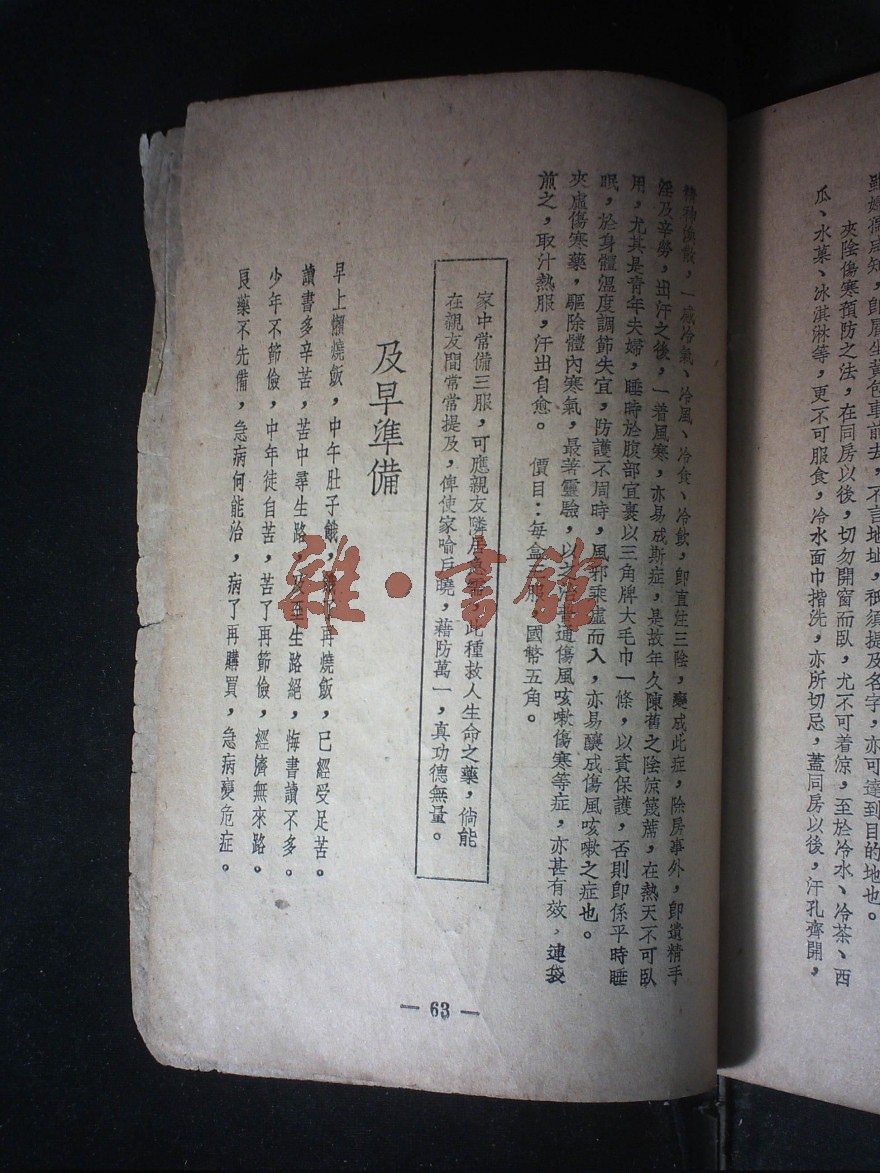 雖婦孺咸知，即雇坐黃包車前去，不言地址，祇須提及名字，亦可達到目的地也。
夾陰傷寒預防之法，在同房以後，切勿開窗而臥，尤不可着涼，至於冷水、冷茶、西
瓜、水菓、冰淇淋等，更不可服食，冷水面巾揩洗，亦所切忌，蓋同房以後，汗孔齊開，
精神渙散，一感冷氣、冷風、冷食、冷飲，即直注三陰，變成此症，除房事外，即遺精手
婬及辛勞，出汗之後，一着風寒，亦易成斯症，是故年久陳舊之陰涼篾蓆，在熱天不可臥
用，尤其是青年夫婦，睡時於腹部宜裹以三角牌大毛巾一條，以資保護，否則即係平時睡
眠，於身體溫度調節失宜，防護不周時，風邪乘虛而入，亦易釀成傷風咳嗽之症也。
夾虛傷寒藥，驅除體內寒氣，最著靈驗，以之治普通傷風咳嗽傷寒等症，亦甚有效，連袋
煎之，取汁熱服，汗出自愈。 價目：每盒 服，國幣五角。
家中常備三服，可應親友隣居急需，此種救人生命之藥，倘能
在親友間常常提及，俾使家喻戶曉，藉防萬一，真功德無量。
及早準備
早上懶燒飯，中午肚子餓，餓了再燒飯，已經受足苦。
讀書多辛苦，苦中尋生路，及至生路絕，悔書讀不多。
少年不節儉，中年徒自苦，苦了再節儉，經濟無來路。
良藥不先備，急病何能治，病了再購買，急病變危症。
— 63 —
雜·書館